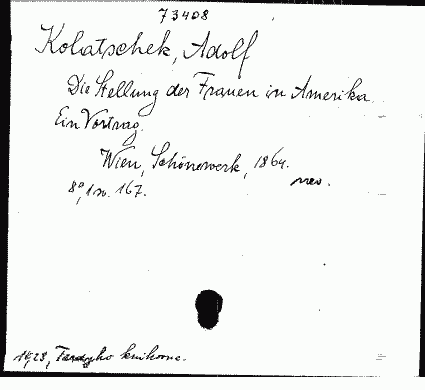 73408
Kolatschek, Adolf
Die Stellung der Frauen in Amerika.
Ein Vortrag.
Wien, Schönewerk, 1864.
8°, 167.
nev.
1923, knihovna.